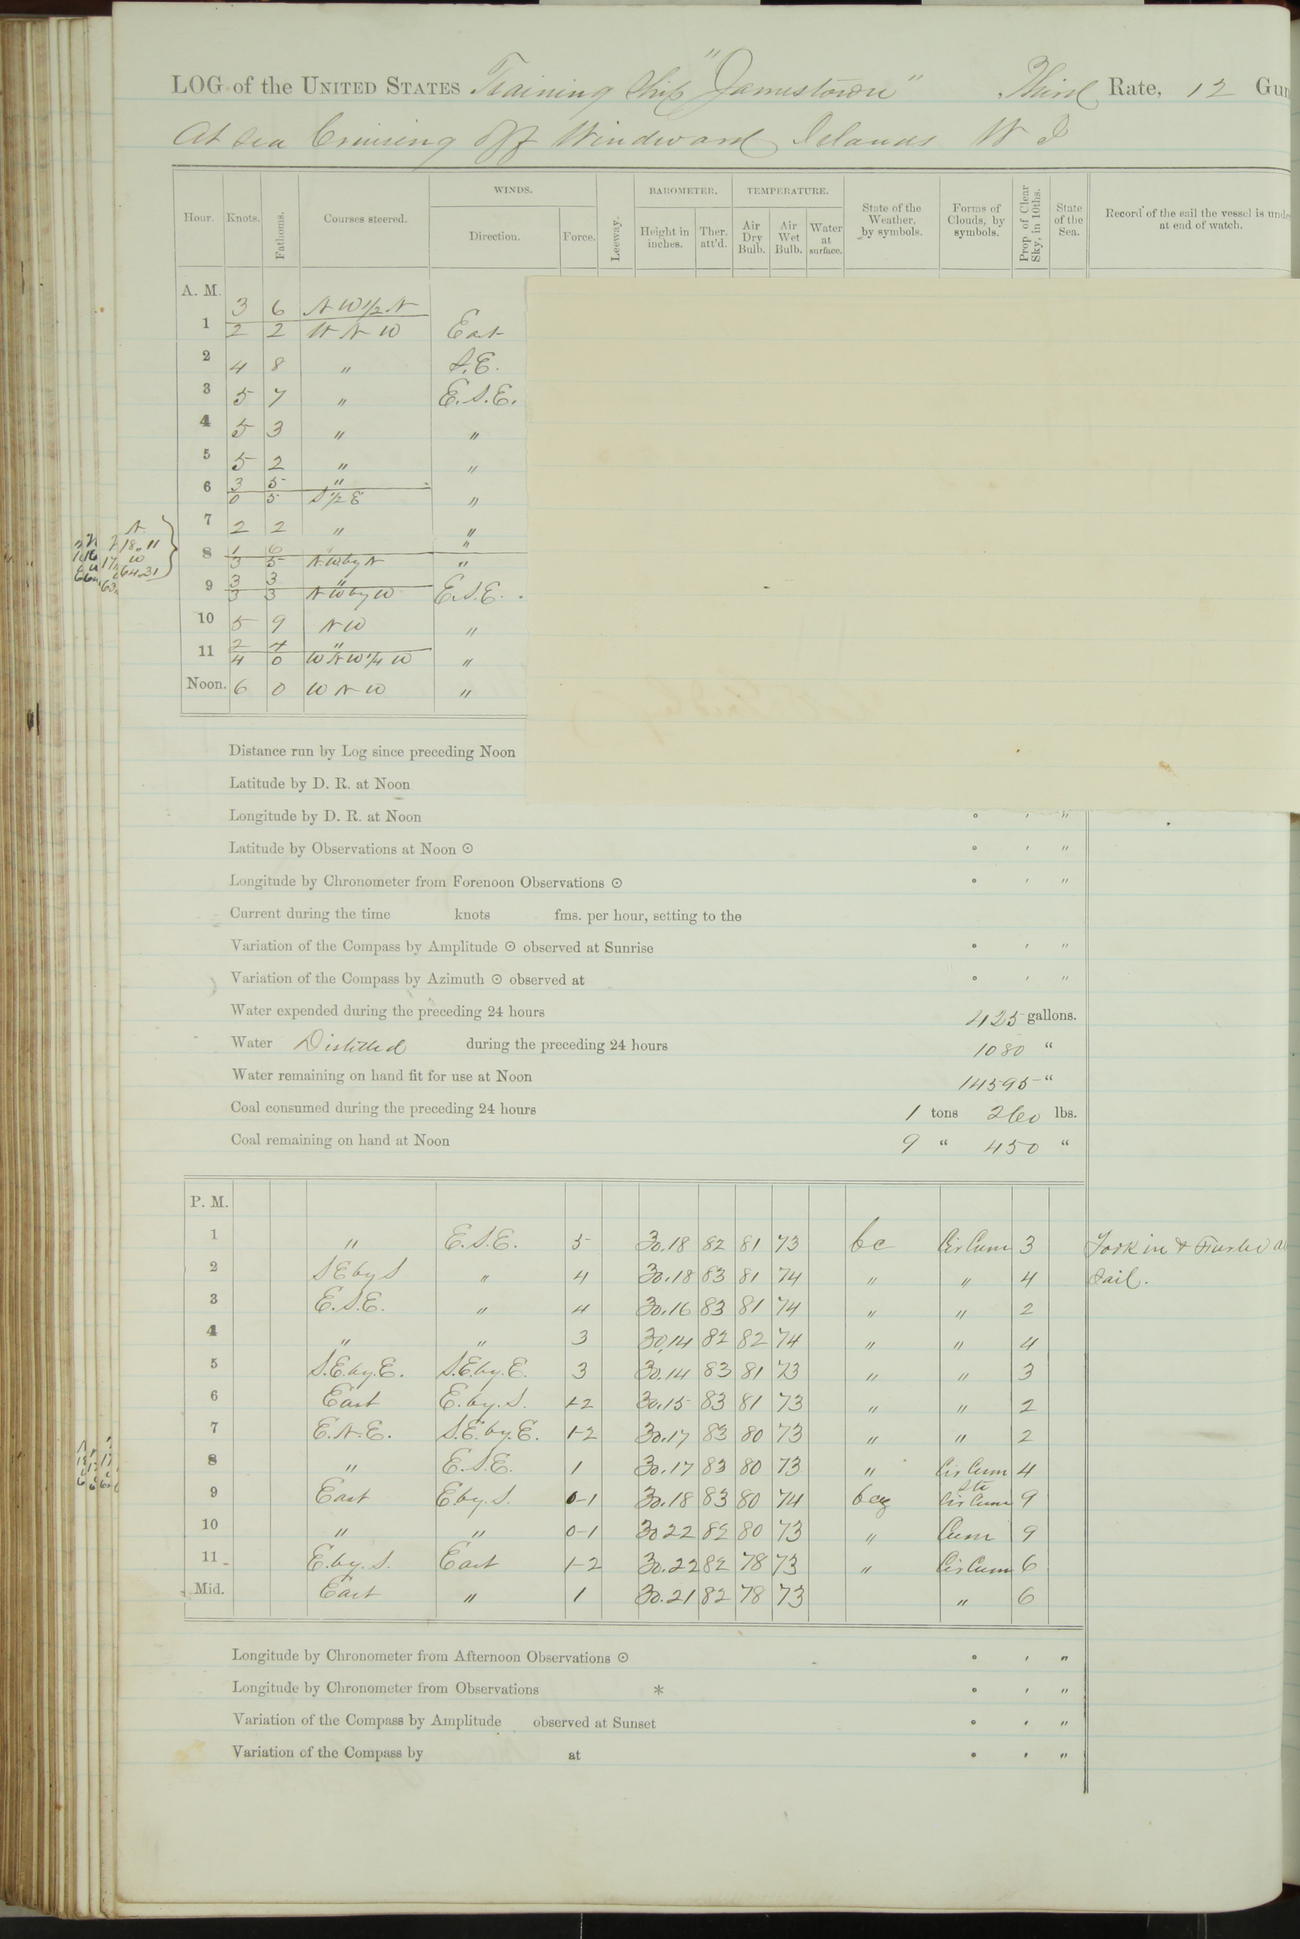 LOG of the UNITED STATES Training Ship "Jamestown" Third Rate, 12 Gun
At sea Cruising off Windward Islands W I
Hour. Knots. Fathoms. Courses steered. WINDS. Direction. Force. Leeway. BAROMETER. Height in inches. Ther. att'd. TEMPERATURE. Air Dry Bulb. Air Wet Bulb. Water at surface. State of the Weather, by symbols. Forms of Clouds, by symbols. Prop. of Clear Sky, in 10ths. State of the Sea. Record of the sail the vessel is unde at end of watch.
A. M.
3 6 N W 1/2 N
1 2 2 W N W East
2 4 8 " S.E.
3 5 7 " E.S.E.
4 5 3 " "
5 5 2 " "
6 3 5 "
0 5 S 1/2 E "
7 2 2 " "
8 1 6 " "
3 5 N W by N "
9 3 3 "
3 3 N W by W E.S.E.
10 5 9 N W "
11 2 4 "
4 0 W N W 1/4 W "
Noon. 6 0 W N W "
N
18.11
W
64.31
Distance run by Log since preceding Noon
Latitude by D. R. at Noon
Longitude by D. R. at Noon ° ' "
Latitude by Observations at Noon ⊙ ° ' "
Longitude by Chronometer from Forenoon Observations ⊙ ° ' "
Current during the time knots fms. per hour, setting to the
Variation of the Compass by Amplitude ⊙ observed at Sunrise ° ' "
Variation of the Compass by Azimuth ⊙ observed at ° ' "
Water expended during the preceding 24 hours 425 gallons.
Water Distilled during the preceding 24 hours 1080 "
Water remaining on hand fit for use at Noon 14595 "
Coal consumed during the preceding 24 hours 1 tons 260 lbs.
Coal remaining on hand at Noon 9 " 450 "
P. M.
1 " E.S.E. 5 30.18 82 81 73 bc Cir Cum 3 Took in & Furled a
2 SE by S " 4 30.18 83 81 74 " " 4 Sail.
3 E.S.E. " 4 30.16 83 81 74 " " 2
4 " " 3 30.14 82 82 74 " " 4
5 S.E. by. E. S.E. by. E. 3 30.14 83 81 73 " " 3
6 East E. by. S. 1-2 30.15 83 81 73 " " 2
7 E.N.E. S.E. by. E. 1-2 30.17 83 80 73 " " 2
8 " E.S.E. 1 30.17 83 80 73 " Cir Cum 4
9 East E by. S. 0-1 30.18 83 80 74 bcq Str Cir Cum 9
10 " " 0-1 30 22 82 80 73 " Cum 9
11 E. by. S. East 1-2 30.22 82 78 73 " Cir Cum 6
Mid. East " 1 30.21 82 78 73 " 6
Longitude by Chronometer from Afternoon Observations ⊙ ° ' "
Longitude by Chronometer from Observations * ° ' "
Variation of the Compass by Amplitude observed at Sunset ° ' "
Variation of the Compass by at ° ' "